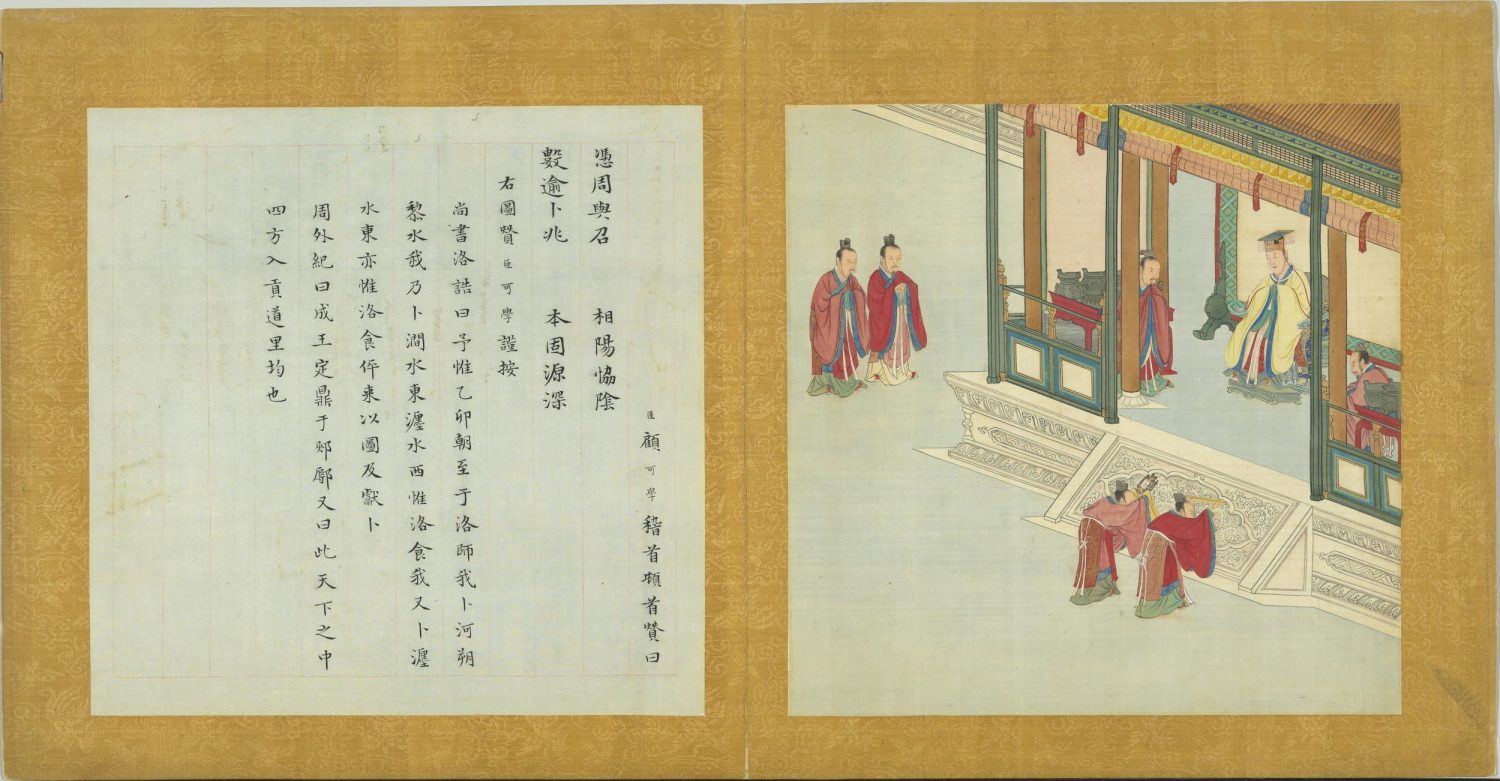 臣顧可學稽首頓首贊曰
憑周與召　相陽協陰
數逾卜兆　本固源深
右圖贊臣可學謹按
尚書洛誥曰予惟乙卯朝至于洛師我卜河朔
黎水我乃卜澗水東瀍水西惟洛食我又卜瀍
水東亦惟洛食伻来以圖及獻卜
周外紀曰成王定鼎于郟鄏又曰此天下之中
四方入貢道里均也